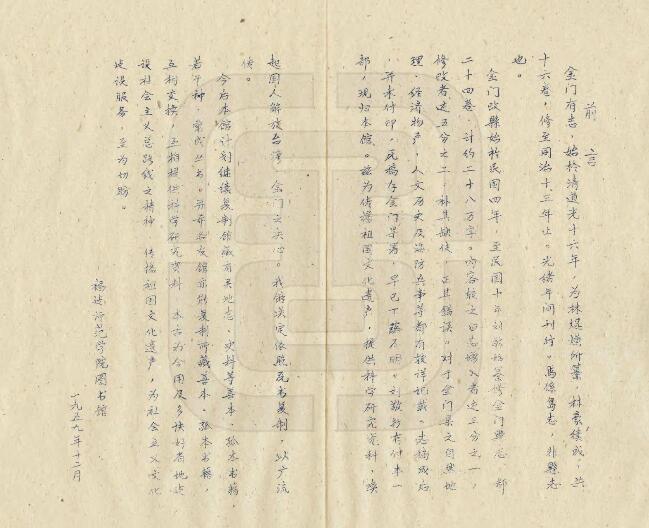 前言
金门有志，始於清道光十六年，为林焜熿所纂，林豪续成，共
十六卷，修至同治十三年止。光绪年间刊行。马係岛志，非县志
也。
金门改县始於民国四年，至民国十年刘敬始纂修金门县志一部
二十四卷，计约二十八万字。内容较之旧志增入者达三分之一，
修改者达五分之二，补其缺佚，正其错误。对于金门县之自然地
理、经济物产，人文历史及海防兵事等都有较详记载。志稿成后
并未付印，底稿存金门县署，早已下落不明。刘敬抄有付本一
部，现归本馆。兹为传播祖国文化遗产，提供科学研究资料，唤
起国人解放台湾、金门之决心。我馆决定依照底书复制，以广流
传。
今后本馆计划继续复制馆藏有关地志、史料等善本、孤本书籍，
若干种，汇成丛书。并希兄友馆亦能复制所藏善本、孤本书籍，
互利交换，互相提供科学研究资料，本古为今用及多快好省地建
设社会主义总路线之精神，传播祖国文化遗产，为社会主义文化
建设服务，至为切盼。
福建师范学院图书馆
一九五九年十二月